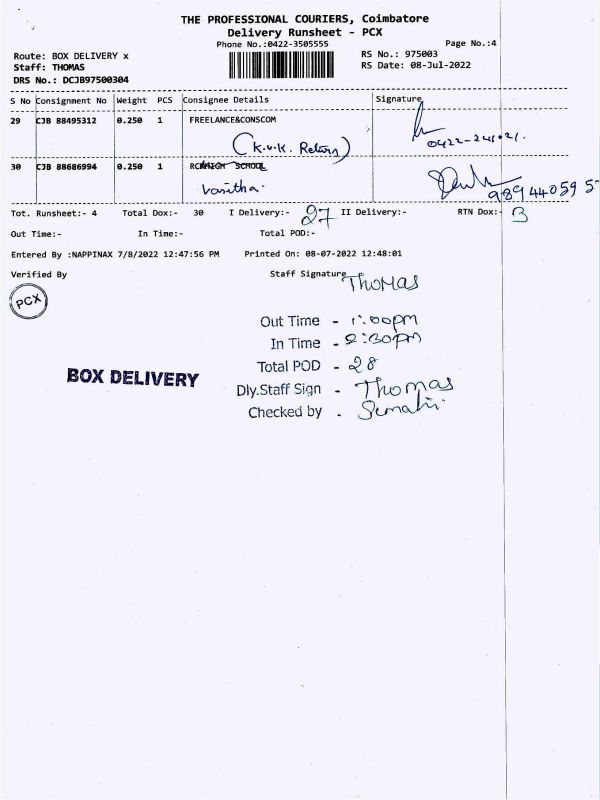 THE PROFESSIONAL COURIERS, Coimbatore
Delivery Runsheet - PCX
Phone No.:0422-3505555
Page No.:4
Route: BOX DELIVERY x
RS No.: 975003
Staff: THOMAS
RS Date: 08-Jul-2022
DRS No.: DCJB97500304
S No Consignment No Weight PCS Consignee Details Signature
29 CJB 88495312 0.250 1 FREELANCE&CONSCOM
(K.V.K. Return)
30 CJB 88686994 0.250 1 SCHOOL
Vanitha
Tot. Runsheet:- 4 Total Dox:- 30 I Delivery:- 27 II Delivery:- RTN Dox:-
Out Time:- In Time:- Total POD:-
Entered By :NAPPINAX 7/8/2022 12:47:56 PM Printed On: 08-07-2022 12:48:01
Verified By Staff Signature Thomas
PCX
Out Time - 1:00pm
In Time - 2:30pm
Total POD - 28
BOX DELIVERY
Dly.Staff Sign - Thomas
Checked by -